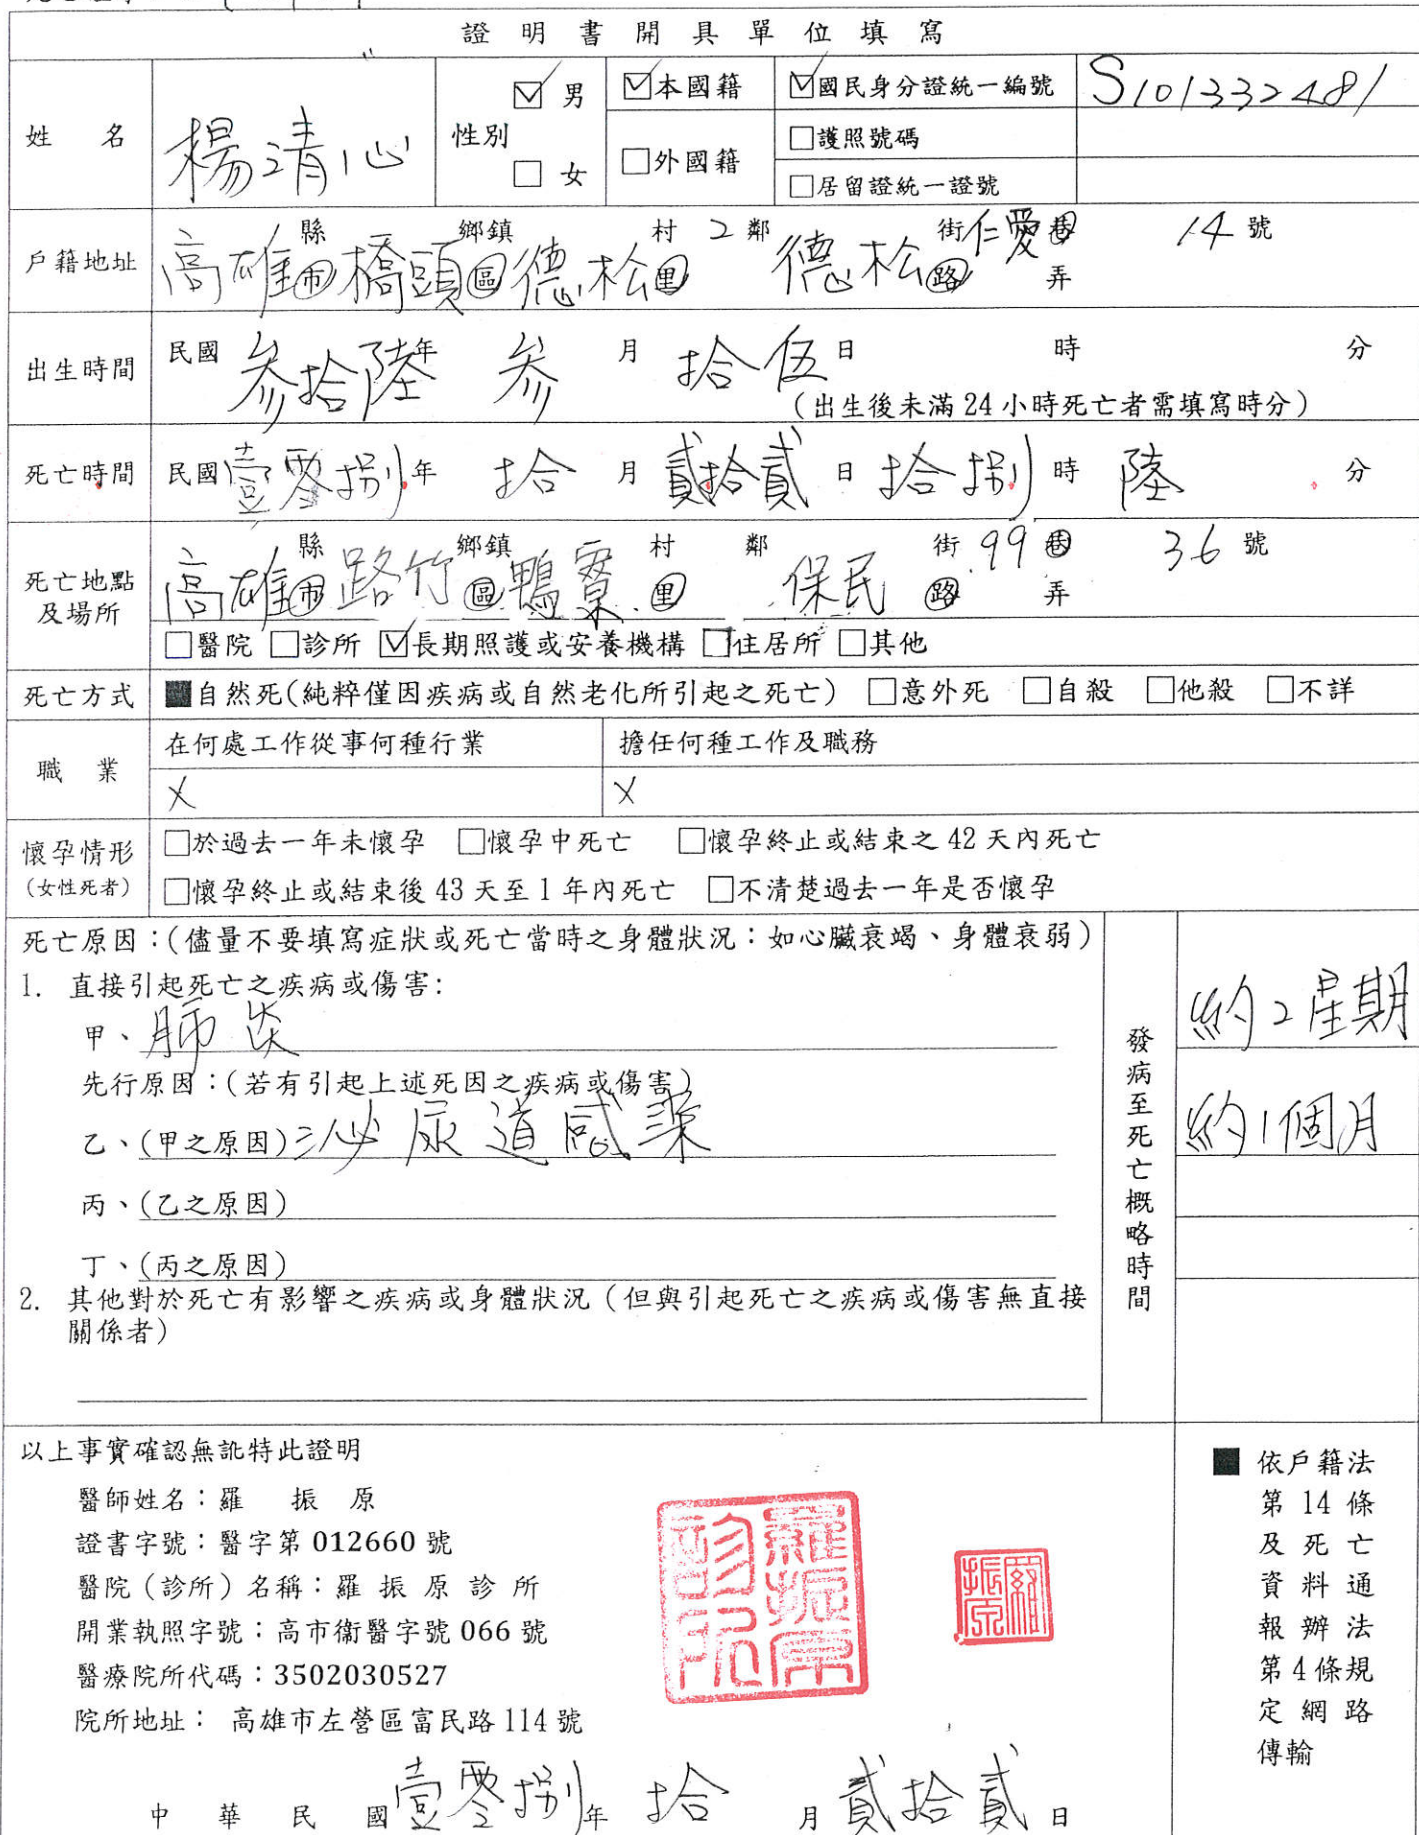 證明書開具單位填寫
姓名 楊清心 性別 ☑男 □女 ☑本國籍 □外國籍 ☑國民身分證統一編號 S101332481
□護照號碼
□居留證統一證號
戶籍地址 高雄縣市 橋頭鄉鎮區 德松村里 2鄰 德松街路 仁愛巷弄 14號
出生時間 民國 參拾陸年 參月 拾伍日 時 分
(出生後未滿24小時死亡者需填寫時分)
死亡時間 民國 壹零捌年 拾月 貳拾貳日 拾捌時 陸分
死亡地點及場所 高雄縣市 路竹鄉鎮區 鴨寮村里 鄰 保民街路 99巷弄 36號
□醫院 □診所 ☑長期照護或安養機構 □住居所 □其他
死亡方式 ■自然死(純粹僅因疾病或自然老化所引起之死亡) □意外死 □自殺 □他殺 □不詳
職業 在何處工作從事何種行業 擔任何種工作及職務
X X
懷孕情形(女性死者) □於過去一年未懷孕 □懷孕中死亡 □懷孕終止或結束之42天內死亡
□懷孕終止或結束後43天至1年內死亡 □不清楚過去一年是否懷孕
死亡原因:(儘量不要填寫症狀或死亡當時之身體狀況:如心臟衰竭、身體衰弱)
發病至死亡概略時間
1. 直接引起死亡之疾病或傷害:
甲、肺炎 約2星期
先行原因:(若有引起上述死因之疾病或傷害)
乙、(甲之原因)泌尿道感染 約1個月
丙、(乙之原因)
丁、(丙之原因)
2. 其他對於死亡有影響之疾病或身體狀況(但與引起死亡之疾病或傷害無直接
關係者)
以上事實確認無訛特此證明
醫師姓名:羅 振 原
證書字號:醫字第012660號
醫院(診所)名稱:羅振原診所
開業執照字號:高市衛醫字號066號
醫療院所代碼:3502030527
院所地址: 高雄市左營區富民路114號
中華民國壹零捌年 拾月 貳拾貳日
羅振原診所
羅振原
■依戶籍法
第14條
及死亡
資料通
報辦法
第4條規
定網路
傳輸